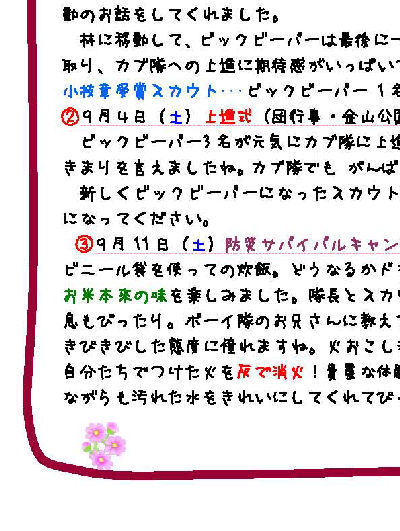 動のお話をしてくれました。
林に移動して、ビックビーバーは最後に一
取り、カブ隊への上進に期待感がいっぱい
小枝章受賞スカウト…ビックビーバー 1名
②9月4日(土)上進式(団行事・金山公園
ビックビーバー3名が元気にカブ隊に上進
きまりを言えましたね。カブ隊でも がんば
新しくビックビーバーになったスカウト
になってください。
③9月11日(土)防災サバイバルキャン
ビニール袋を使っての炊飯。どうなるかド
お米本来の味を楽しみました。隊長とスカ
息もぴったり。ボーイ隊のお兄さんに教え
きびきびした態度に憧れますね。火おこし
自分たちでつけた火を灰で消火!貴重な体
ながらも汚れた水をきれいにしてくれてび